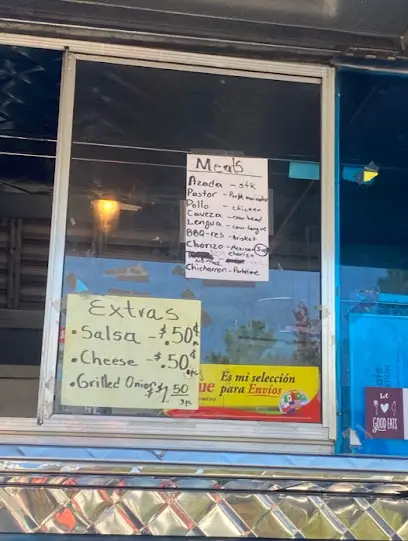 Meats
Azada - stk
Pastor - Pork marinated
Pollo - chicken
Caveza - cow head
Lengua - cow tongue
BBQ-res - Brisket
Chorizo - Mexican
chorizo
Chicharron -
Extras
• Salsa - $.50¢
• Cheese - $.50¢
• Grilled Onions $1.50
Es mi selección
para Envíos
GOOD EATS